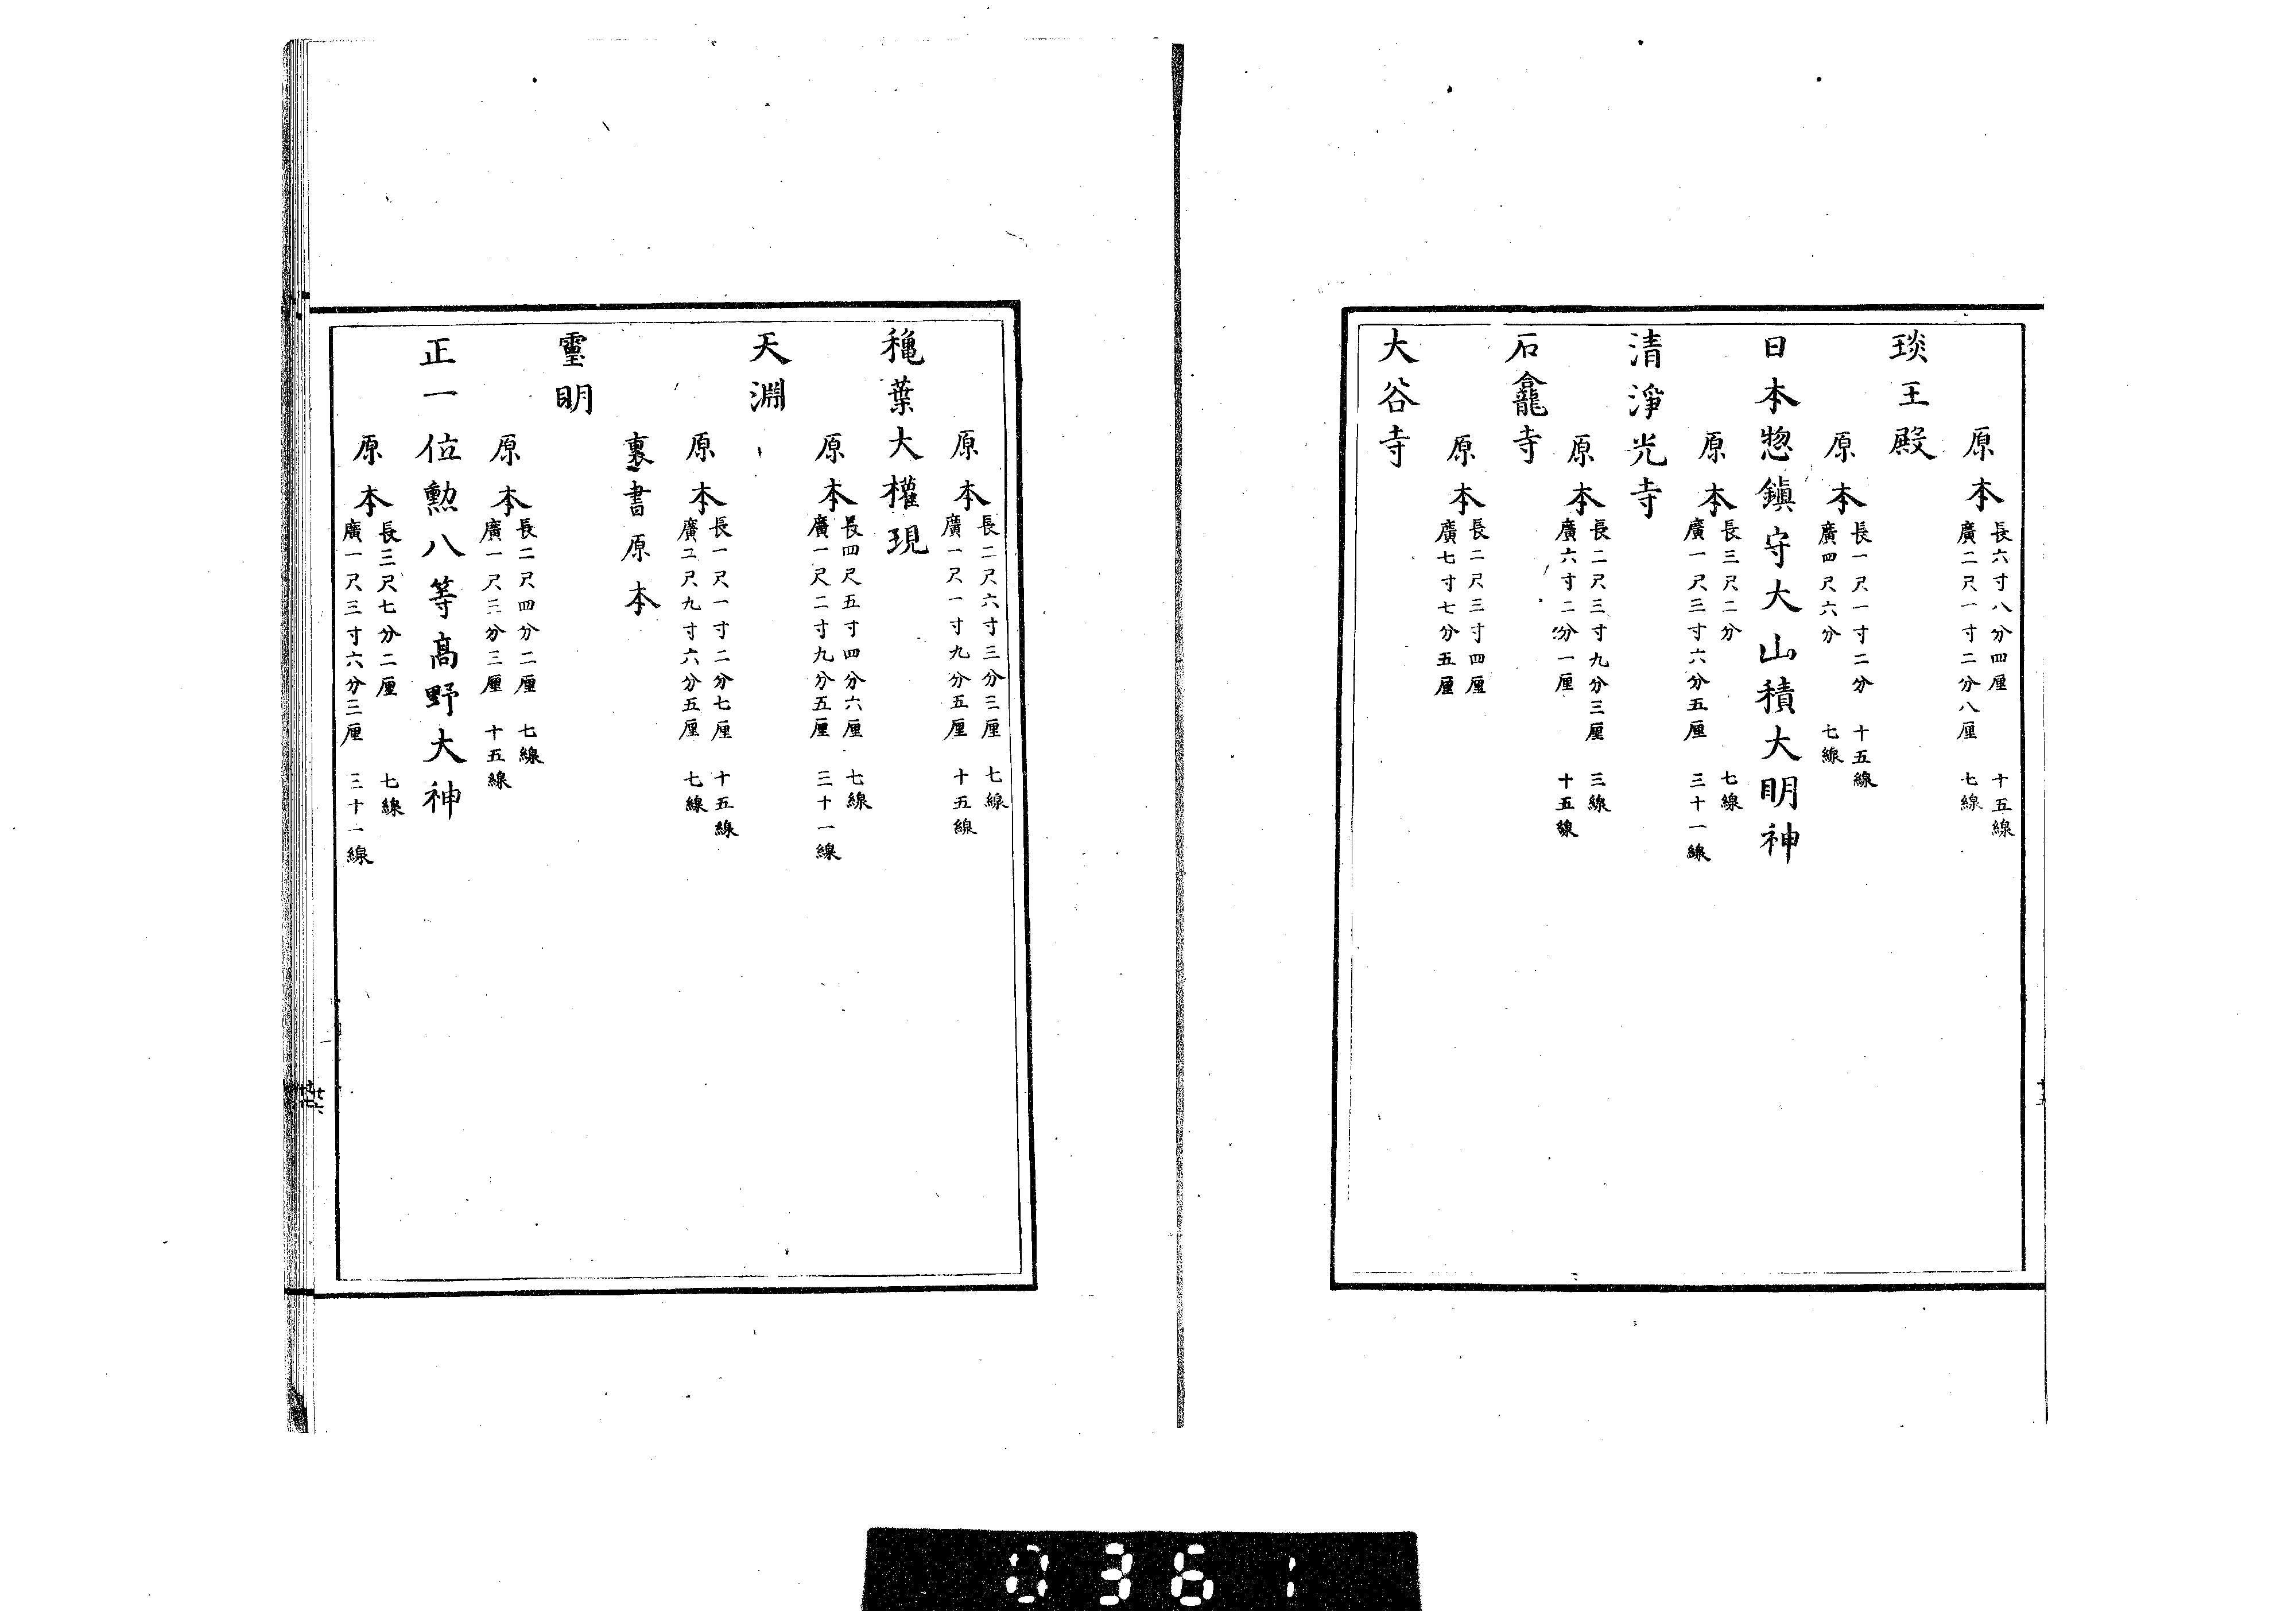 原本 長六寸八分四厘 十五線
廣二尺一寸二分八厘 七線
琰王殿
原本 長一尺一寸二分 十五線
廣四尺六分 七線
日本惣鎮守大山積大明神
原本 長三尺二分 七線
廣一尺三寸六分五厘 三十一線
清淨光寺
原本 長二尺三寸九分三厘 三線
廣六寸二分一厘 十五線
石龕寺
原本 長二尺三寸四厘
廣七寸七分五厘
大谷寺
原本 長二尺六寸三分三厘 七線
廣一尺一寸九分五厘 十五線
穐葉大權現
原本 長四尺五寸四分六厘 七線
廣一尺二寸九分五厘 三十一線
天淵
原本 長一尺一寸二分七厘 十五線
廣二尺九寸六分五厘 七線
裏書原本
靈明
原本 長二尺四分二厘 七線
廣一尺三分三厘 十五線
正一位勲八等髙野大神
原本 長三尺七分二厘 七線
廣一尺三寸六分三厘 三十一線
0361